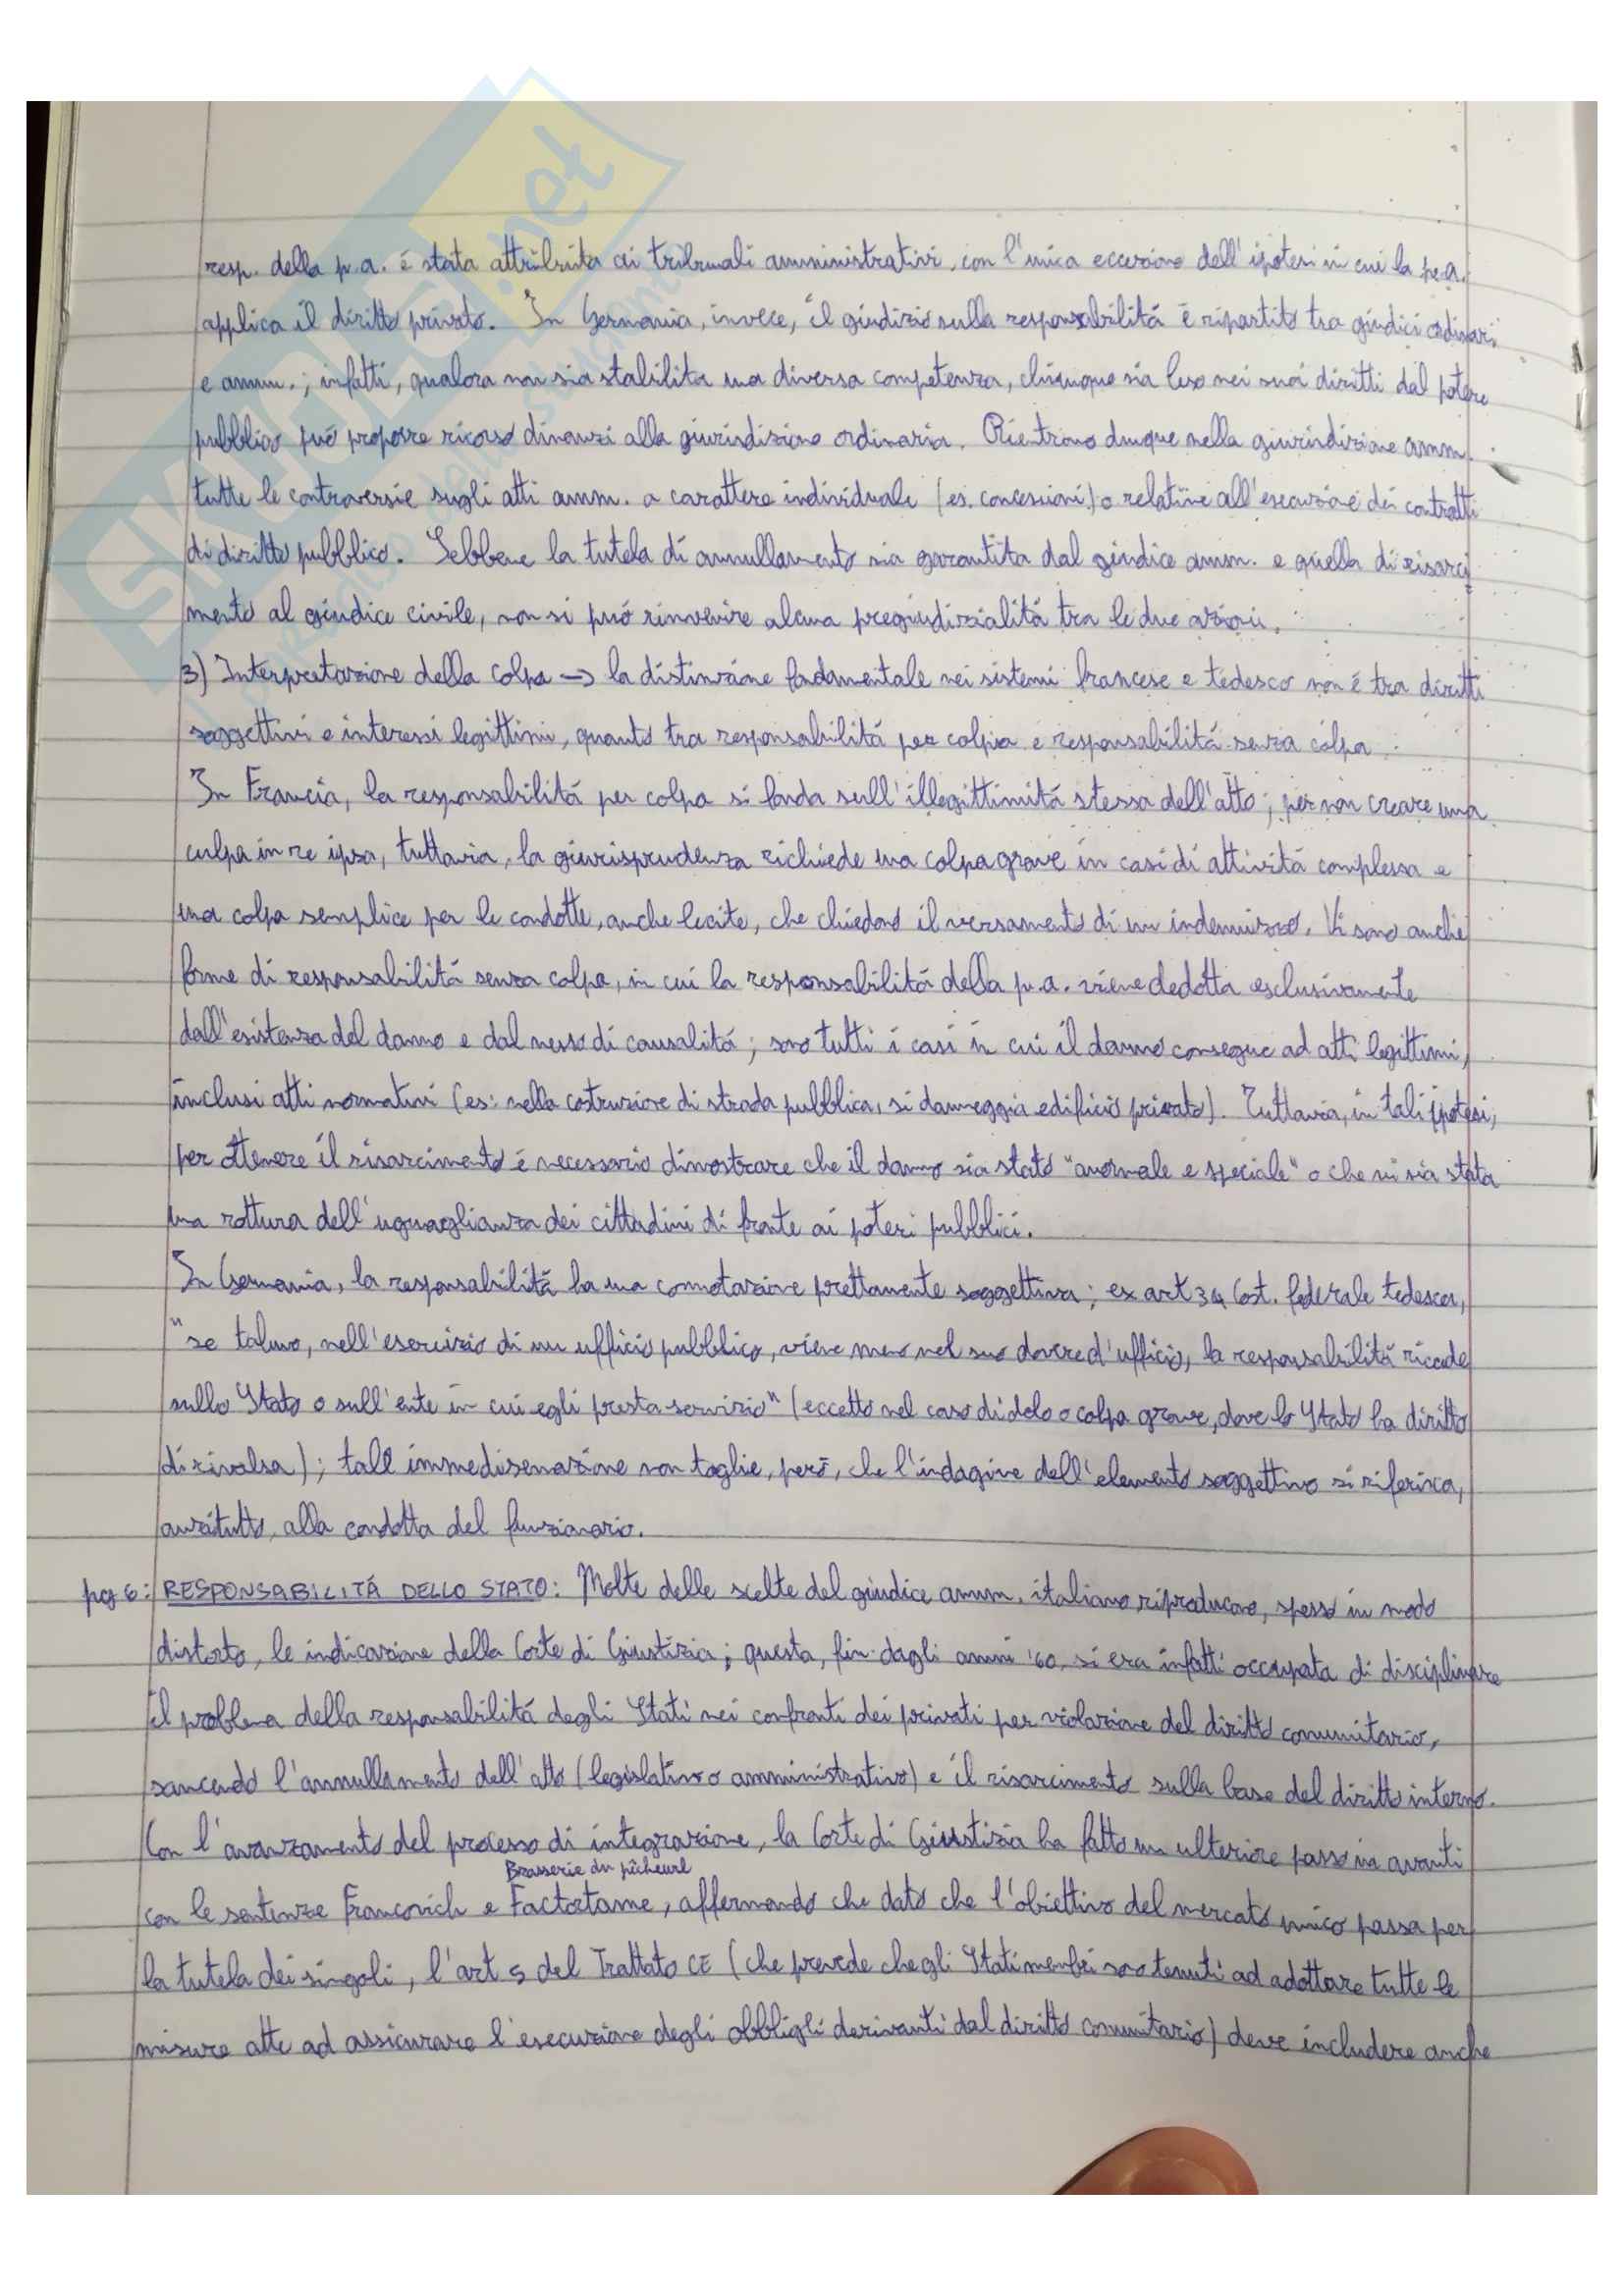 resp. della p.a. é stata attribuita ai tribunali amministrativi, con l'unica eccezione dell'ipotesi in cui la p.a.
applica il diritto privato. In Germania, invece, il giudizio sulla responsabilitá é ripartito tra giudici ordinari
e amm.; infatti, qualora non sia stabilita una diversa competenza, chiunque sia leso nei suoi diritti dal potere
pubblico puó proporre ricorso dinanzi alla giurisdizione ordinaria. Rientrano dunque nella giurisdizione amm.
tutte le controversie sugli atti amm. a carattere individuale (es. concessioni) o relative all'esecuzione dei contratti
di diritto pubblico. Sebbene la tutela di annullamento sia garantita dal giudice amm. e quella di risarci
mento al giudice civile, non si puó rinvenire alcuna pregiudizialitá tra le due azioni.
3) Interpretazione della colpa → la distinzione fondamentale nei sistemi francese e tedesco non é tra diritti
soggettivi e interessi legittimi, quanto tra responsabilitá per colpa e responsabilitá senza colpa.
In Francia, la responsabilitá per colpa si fonda sull'illegittimitá stessa dell'atto; per non creare una
culpa in re ipsa, tuttavia, la giurisprudenza richiede una colpa grave in casi di attivitá complessa e
una colpa semplice per le condotte, anche lecite, che chiedono il versamento di un indennizzo. Vi sono anche
forme di responsabilitá senza colpa, in cui la responsabilitá della p.a. viene dedotta esclusivamente
dall'esistenza del danno e dal nesso di causalitá; sono tutti i casi in cui il danno consegue ad atti legittimi,
inclusi atti normativi (es: nella costruzione di strada pubblica, si danneggia edificio privato). Tuttavia, in tali ipotesi,
per ottenere il risarcimento é necessario dimostrare che il danno sia stato "anormale e speciale" o che vi sia stata
una rottura dell'uguaglianza dei cittadini di fronte ai poteri pubblici.
In Germania, la responsabilitá ha una connotazione prettamente soggettiva; ex art 34 Cost. federale tedesca,
"se taluno, nell'esercizio di un ufficio pubblico, viene meno nel suo dovere d'ufficio, la responsabilitá ricade
sullo Stato o sull'ente in cui egli presta servizio" (eccetto nel caso di dolo o colpa grave, dove lo Stato ha diritto
di rivalsa); tale immedesimazione non toglie, peró, che l'indagine dell'elemento soggettivo si riferisca,
anzitutto, alla condotta del funzionario.
pag 6: RESPONSABILITÁ DELLO STATO: Molte delle scelte del giudice amm. italiano riproducono, spesso in modo
distorto, le indicazione della Corte di Giustizia; questa, fin dagli anni '60, si era infatti occupata di disciplinare
il problema della responsabilitá degli Stati nei confronti dei privati per violazione del diritto comunitario,
sancendo l'annullamento dell'atto (legislativo o amministrativo) e il risarcimento sulla base del diritto interno.
Con l'avanzamento del processo di integrazione, la Corte di Giustizia ha fatto un ulteriore passo in avanti
Brasserie du pêcheurl
con le sentenze Francovich e Factortame, affermando che dato che l'obiettivo del mercato unico passa per
la tutela dei singoli, l'art 5 del Trattato CE (che prevede che gli Stati membri sono tenuti ad adottare tutte le
misure atte ad assicurare l'esecuzione degli obblighi derivanti dal diritto comunitario) deve includere anche
SKUOLA.net